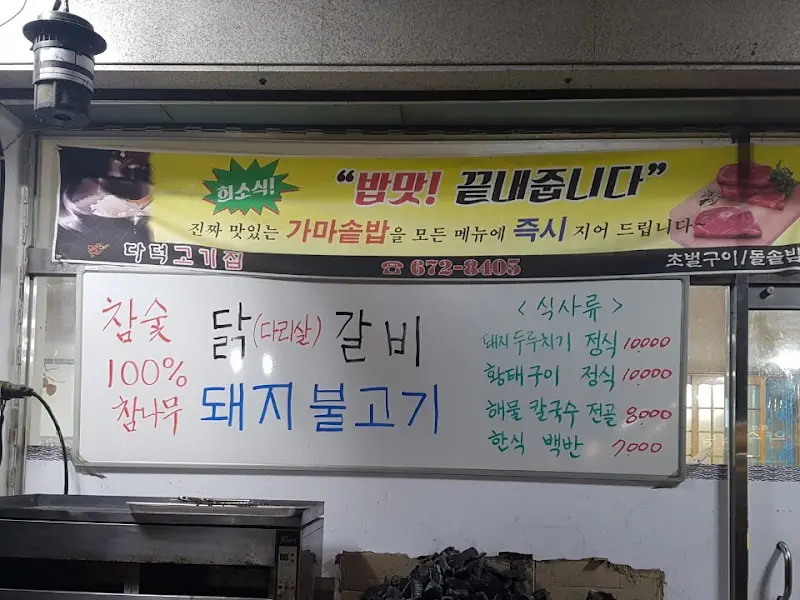 희소식!
“밥맛! 끝내줍니다”
진짜 맛있는 가마솥밥을 모든 메뉴에 즉시 지어 드립니다~
다덕고기집
☎ 672-8405
초벌구이/돌솥밥
참숯
100%
참나무
닭(다리살) 갈비
돼지불고기
<식사류>
돼지두루치기 정식 10.000
황태구이 정식 10.000
해물 칼국수 전골 8.000
한식 백반 7.000